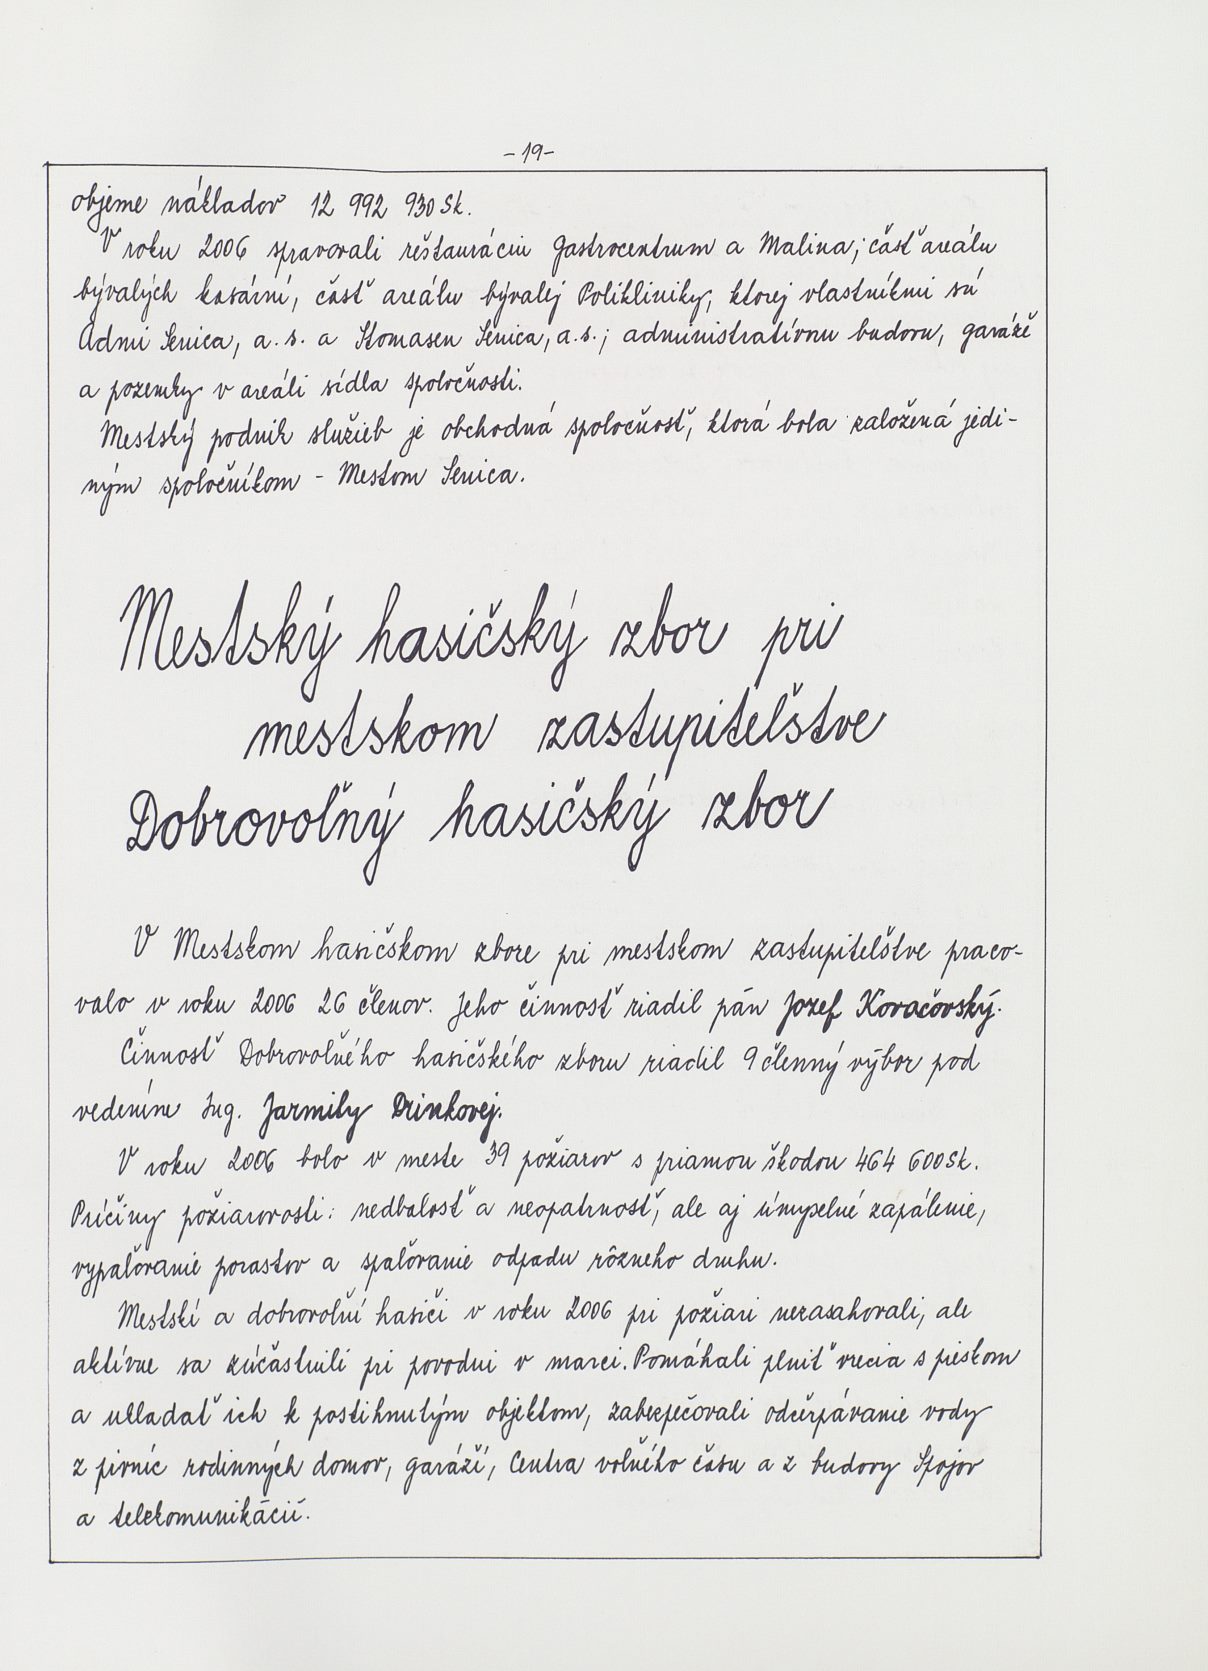 -19-
objeme nákladov 12 992 930 Sk.
V roku 2006 spravovali reštauráciu Gastrocentrum a Malina; časť areálu
bývalých kasární, časť areálu bývalej Polikliniky, ktorej vlastníkmi sú
Admi Senica, a.s. a Stomasen Senica, a.s.; administratívnu budovu, garáže
a pozemky v areáli sídla spoločnosti.
Mestský podnik služieb je obchodná spoločnosť, ktorá bola založená jedi-
ným spoločníkom - Mestom Senica.
Mestský hasičský zbor pri
mestskom zastupiteľstve
Dobrovoľný hasičský zbor
V Mestskom hasičskom zbore pri mestskom zastupiteľstve praco-
valo v roku 2006 26 členov. Jeho činnosť riadil pán Jozef Kovačovský.
Činnosť Dobrovoľného hasičského zboru riadil 9 členný výbor pod
vedením Ing. Jarmily Drinkovej.
V roku 2006 bolo v meste 39 požiarov s priamou škodou 464 600 Sk.
Príčiny požiarovosti: nedbalosť a neopatrnosť, ale aj úmyselné zapálenie,
vypaľovanie porastov a spaľovanie odpadu rôzneho druhu.
Mestskí a dobrovoľní hasiči v roku 2006 pri požiari nezasahovali, ale
aktívne sa zúčastnili pri povodni v marci. Pomáhali plniť vrecia s pieskom
a ukladať ich k postihnutým objektom, zabezpečovali odčerpávanie vody
z pivníc rodinných domov, garáží, Centra voľného času a z budovy Spojov
a telekomunikácií.